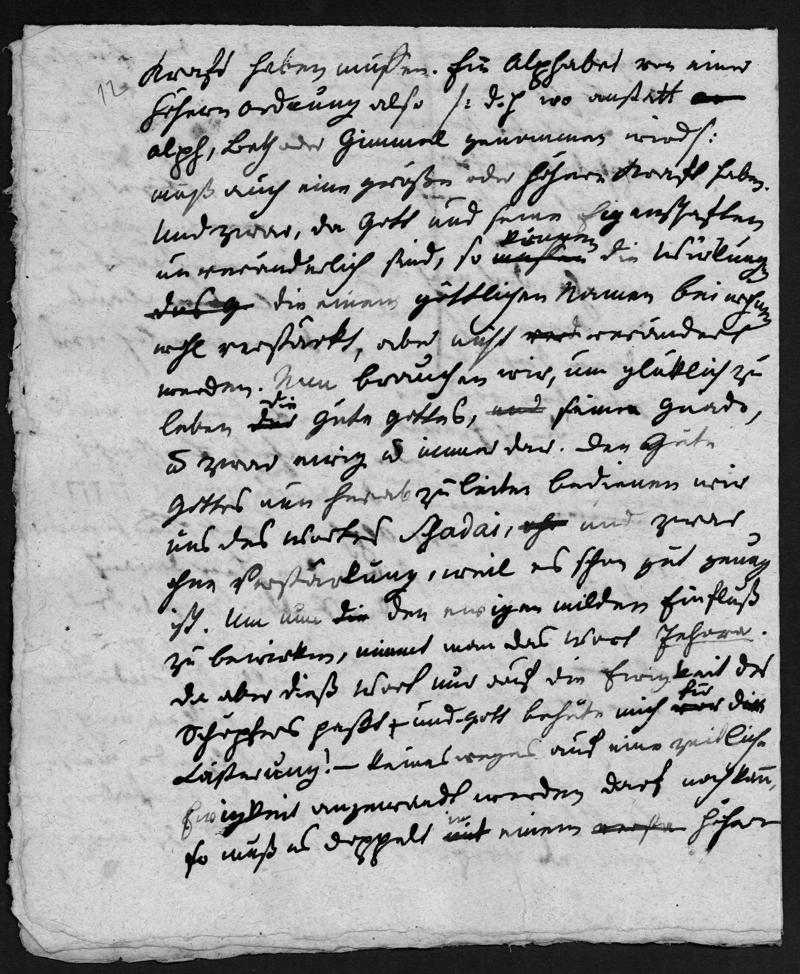 12
Kraft haben müssen. Ein Alphabet von einer
höhern Ordnung also /: d. h. wo anstatt
alph, Beth oder Gimmel genommen wird /:
muß auch eine größere oder höhere Kraft haben.
Und zwar, da Gott und seine Eigenschaften
unveränderlich sind, so müssen können die Würkungen
das g die einem göttlichen Namen beiwohnen
wohl verstärkt, aber nicht verd verändert
werden. Nun brauchen wir, um glüklich zu
leben der die Güte Gottes, und seine Gnade,
u zwar ewig u immerdar. Den Güte
Gottes nun herabzuleiten bedienen wir
uns des Wortes Schadai, ohn und zwar
ohne Verstärkung, weil es schon gut genug
ist. Um nun die den ewigen milden Einfluß
zu bewirken, nimmt man das Wort Jehova.
da aber dieß Wort nur auf die Ewigkeit des
Schöpfers paßt, und Gott behüte mich vor für die
Lästerung! – keineswegs auf eine zeitliche
Ewigkeit angewandt werden darf noch kann,
so muß es doppelt mit in einem höhern